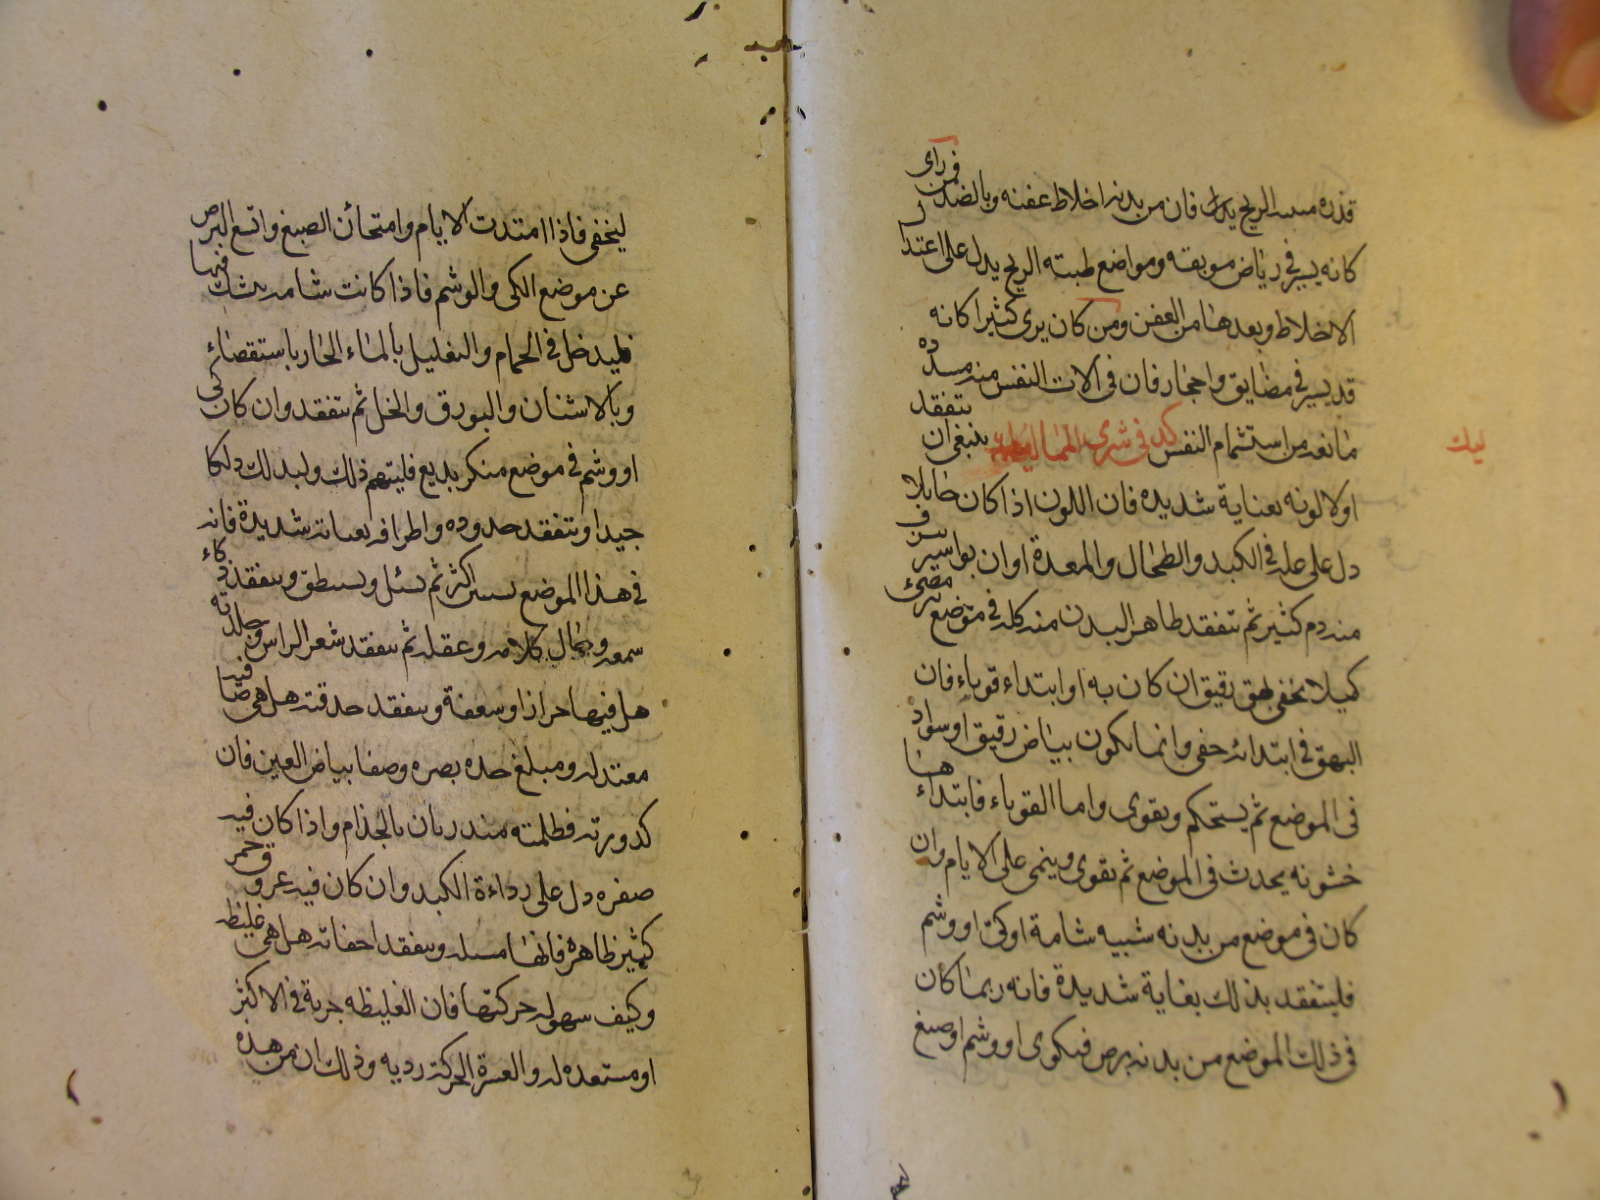 قذره مسه الريح يدل فان من بدنه اخلاط عفنه وبالضد فمن راى
كانه يسير في رياض مويقه ومواضع طيبته الريح يدل على اعتدال
الاخلاط وبعدها من العفن ومن كان يرى كثيرا كانه
قد يسير في مضايق واحجار فان في الات النفس منه سده
مانعه من استشمام النفس كد في شرى المماليك ينبغى ان يتفقد
ليك
اولا لونه بعناية شديده فان اللون اذا كان حايلا
دل على عله في الكبد والطحال والمعدة او ان بواسير ينزف
منه دم كثير ثم تتفقد ظاهر البدن منه كله في موضع مضىء
كميلا يخفى بهق رقيق ان كان به او ابتداء قوباء فان
البهق في ابتدائه خفى وانما يكون بياض رقيق او سواد
فى الموضع ثم يستحكم ويقوى واما القوباء فابتداءها
خشونه يحدث فى الموضع ثم يقوى وينمى على الايام وان
كان فى موضع من بدنه شبيه شامة او كى او وشم
فليتفقد بذلك بغاية شديدة فانه ربما كان
فى ذلك الموضع من بدنه برص فيكوى او وشم او صبغ
ليخفى فاذا امتدت الايام وامتحان الصبغ واتسع البرص
عن موضع الكى والوشم فاذا كانت شامه يشك فيها
فليدخل في الحمام والتغليل بالماء الحار باستقصاء
وبالاشنان والبورق والخل ثم يتفقد وان كان كى
او وشم في موضع منكر بديع فليتهم ذلك وليدلك دلكا
جيدا ويتفقد حدوده واطرافه بعنايه شديدة فانه
في هذا الموضع يتبين اكثر ثم يسئل ويستنطق ويتفقد ذكاء
سمعه وجمال كلامه وعقله ثم يتفقد شعر الراس وجلدته
هل فيها حزاز او سعفة ويتفقد حدقته هل هى صافيه
معتدله ومبلغ حده بصره وصفا بياض العين فان
كدورته فظلمته منذر بان بالجذام واذا كان فيه
صفره دل على رداءة الكبد وان كان فيه عروق حمر
كثير ظاهرة فانها مسبله ويتفقد اجفانه هل هى غليظه
وكيف سهوله حركتها فان الغليظه جربة في الاكثر
او مستعده له والعسرة الحركة رديه وذلك ان من هذه